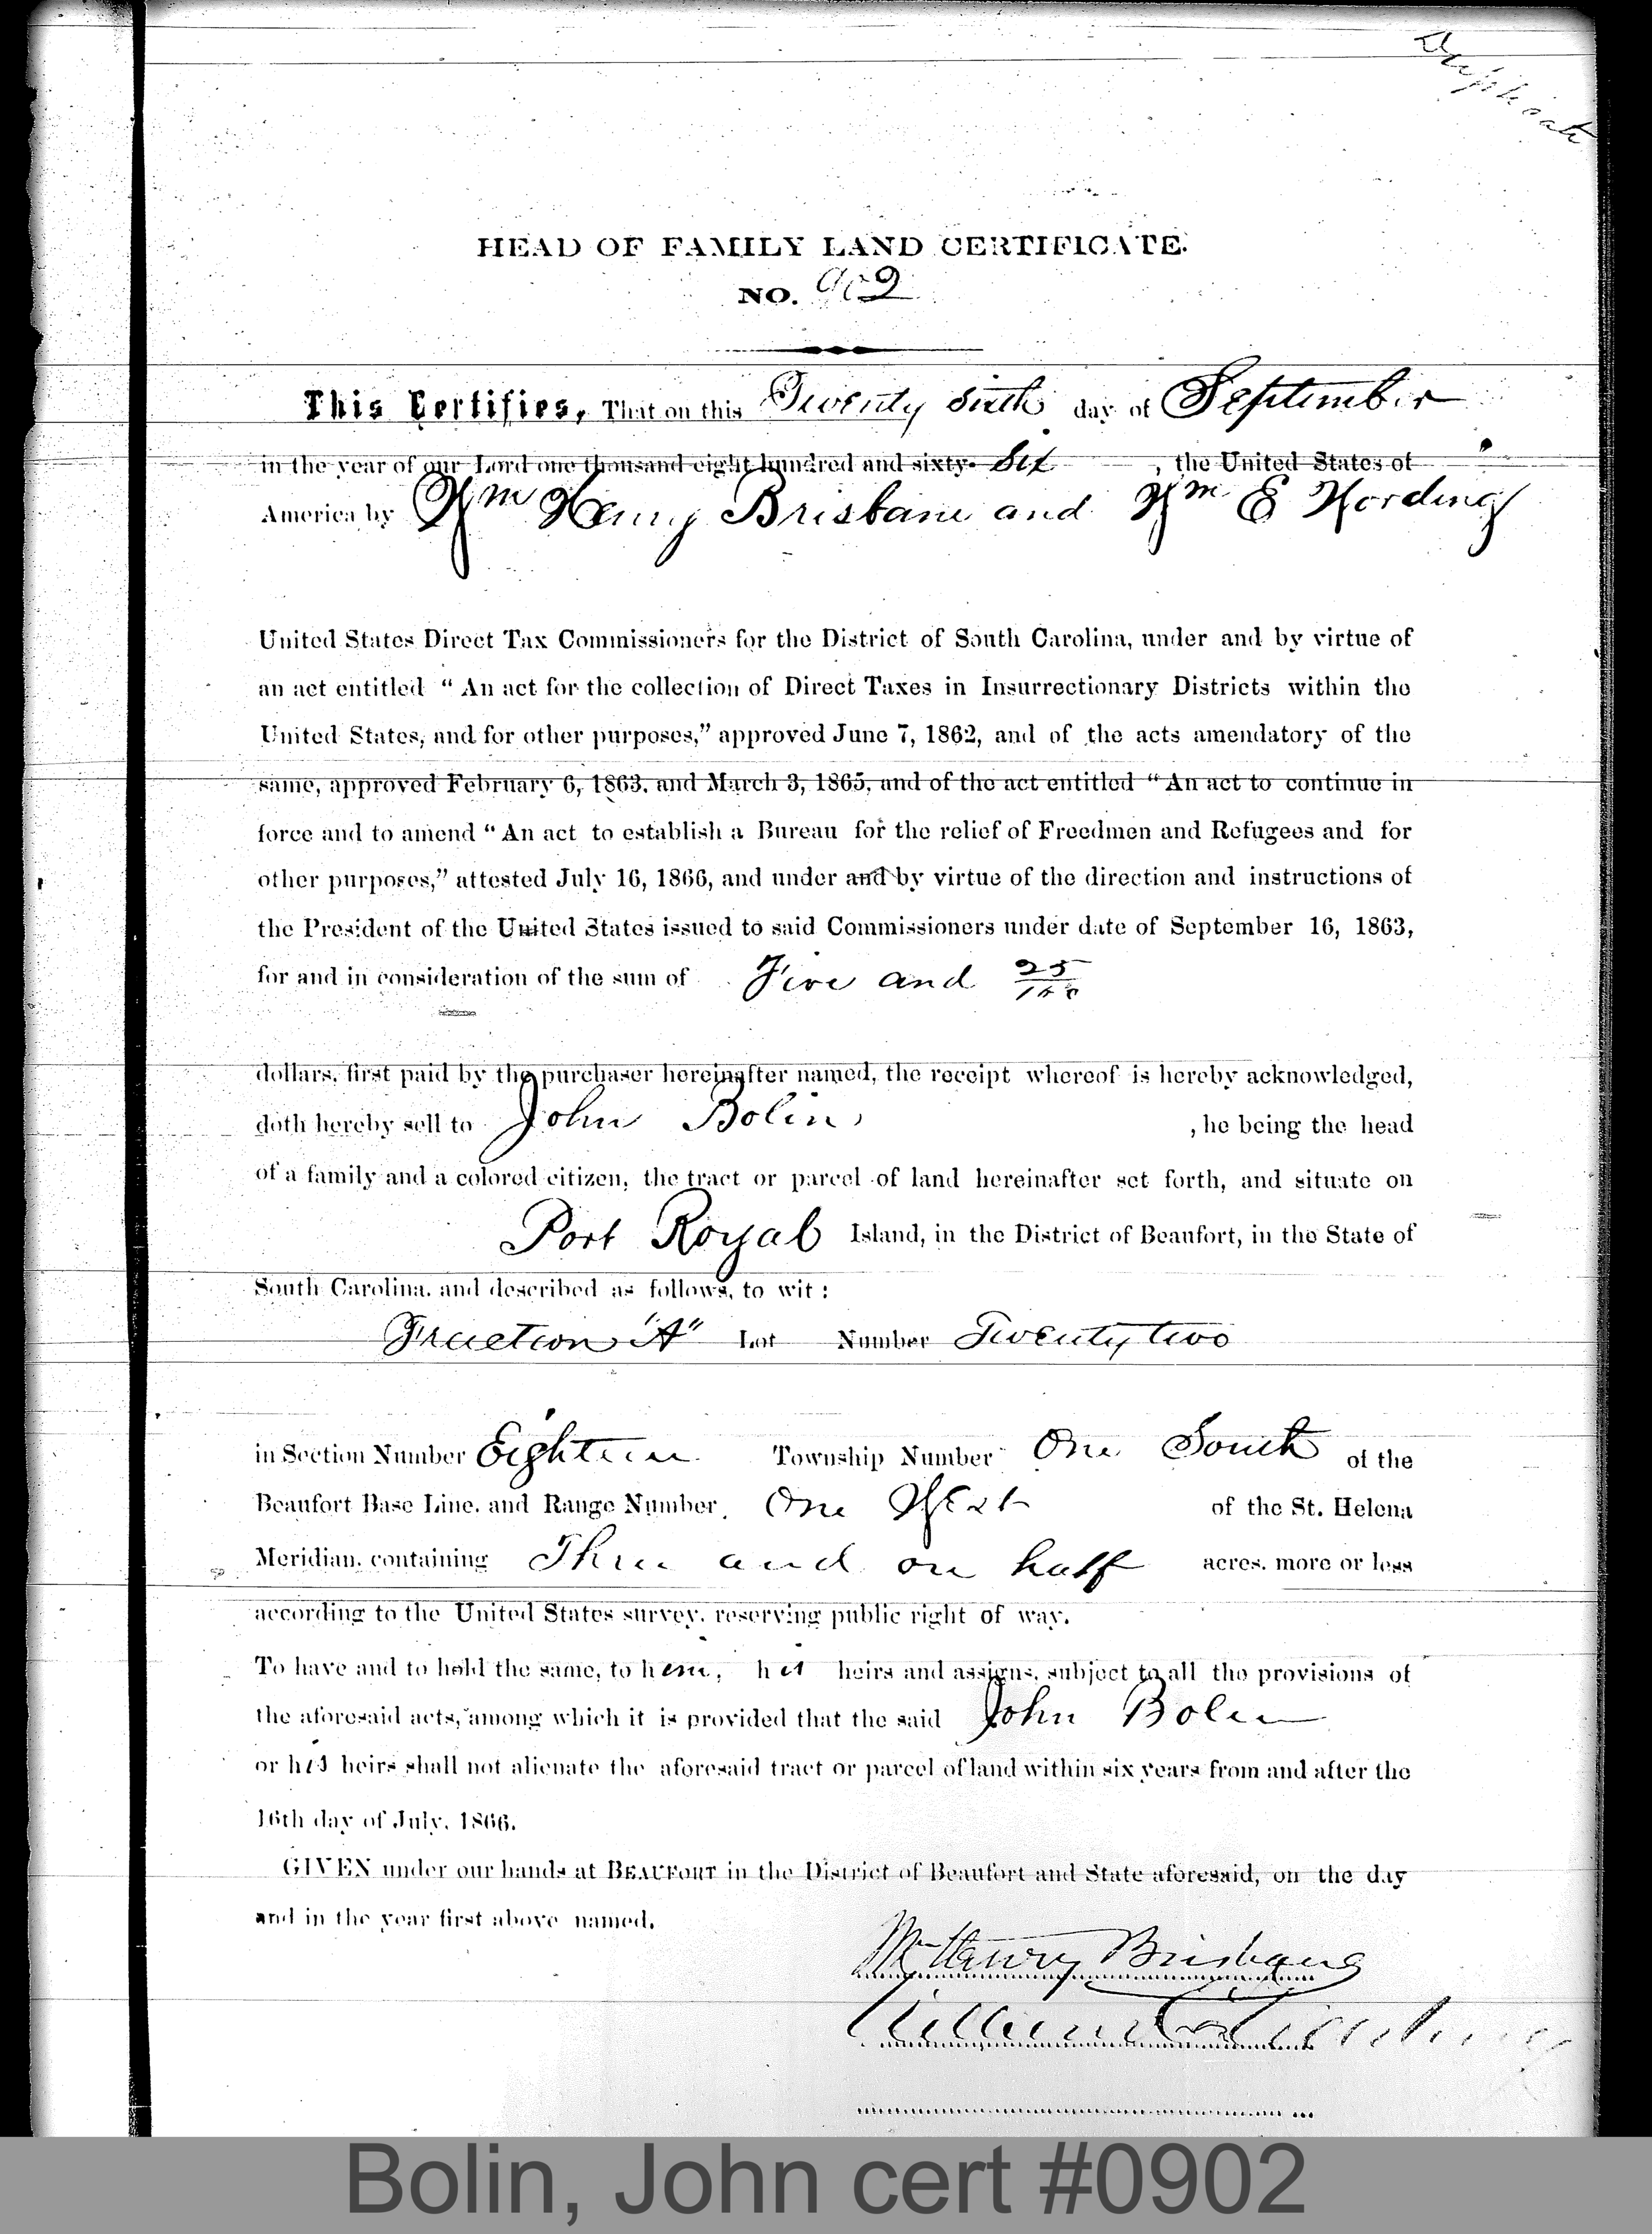 Duplicate
HEAD OF FAMILY LAND CERTIFICATE.
NO. 902
This Certifies, That on this Twenty sixth day of September
in the year of our Lord one thousand eight hundred and sixty- Six , the United States of
America by Wm Henry Brisbane and Wm E Wording
United States Direct Tax Commissioners for the District of South Carolina, under and by virtue of
an act entitled “ An act for the collection of Direct Taxes in Insurrectionary Districts within the
United States, and for other purposes,” approved June 7, 1862, and of the acts amendatory of the
same, approved February 6, 1863, and March 3, 1865, and of the act entitled “ An act to continue in
force and to amend “ An act to establish a Bureau for the relief of Freedmen and Refugees and for
other purposes,” attested July 16, 1866, and under and by virtue of the direction and instructions of
the President of the United States issued to said Commissioners under date of September 16, 1863,
for and in consideration of the sum of Five and 25/100
dollars, first paid by the purchaser hereinafter named, the receipt whereof is hereby acknowledged,
doth hereby sell to John Bolin , he being the head
of a family and a colored citizen, the tract or parcel of land hereinafter set forth, and situate on
Port Royal Island, in the District of Beaufort, in the State of
South Carolina, and described as follows, to wit :
Fraction "A" Lot Number Twenty two
in Section Number Eighteen Township Number One South of the
Beaufort Base Line, and Range Number One West of the St. Helena
Meridian, containing Three and one half acres, more or less
according to the United States survey, reserving public right of way.
To have and to hold the same, to him, his heirs and assigns, subject to all the provisions of
the aforesaid acts, among which it is provided that the said John Bolin
or his heirs shall not alienate the aforesaid tract or parcel of land within six years from and after the
16th day of July, 1866.
GIVEN under our hands at BEAUFORT in the District of Beaufort and State aforesaid, on the day
and in the year first above named.
Wm Henry Brisbane
William E Wording
Bolin, John cert #0902